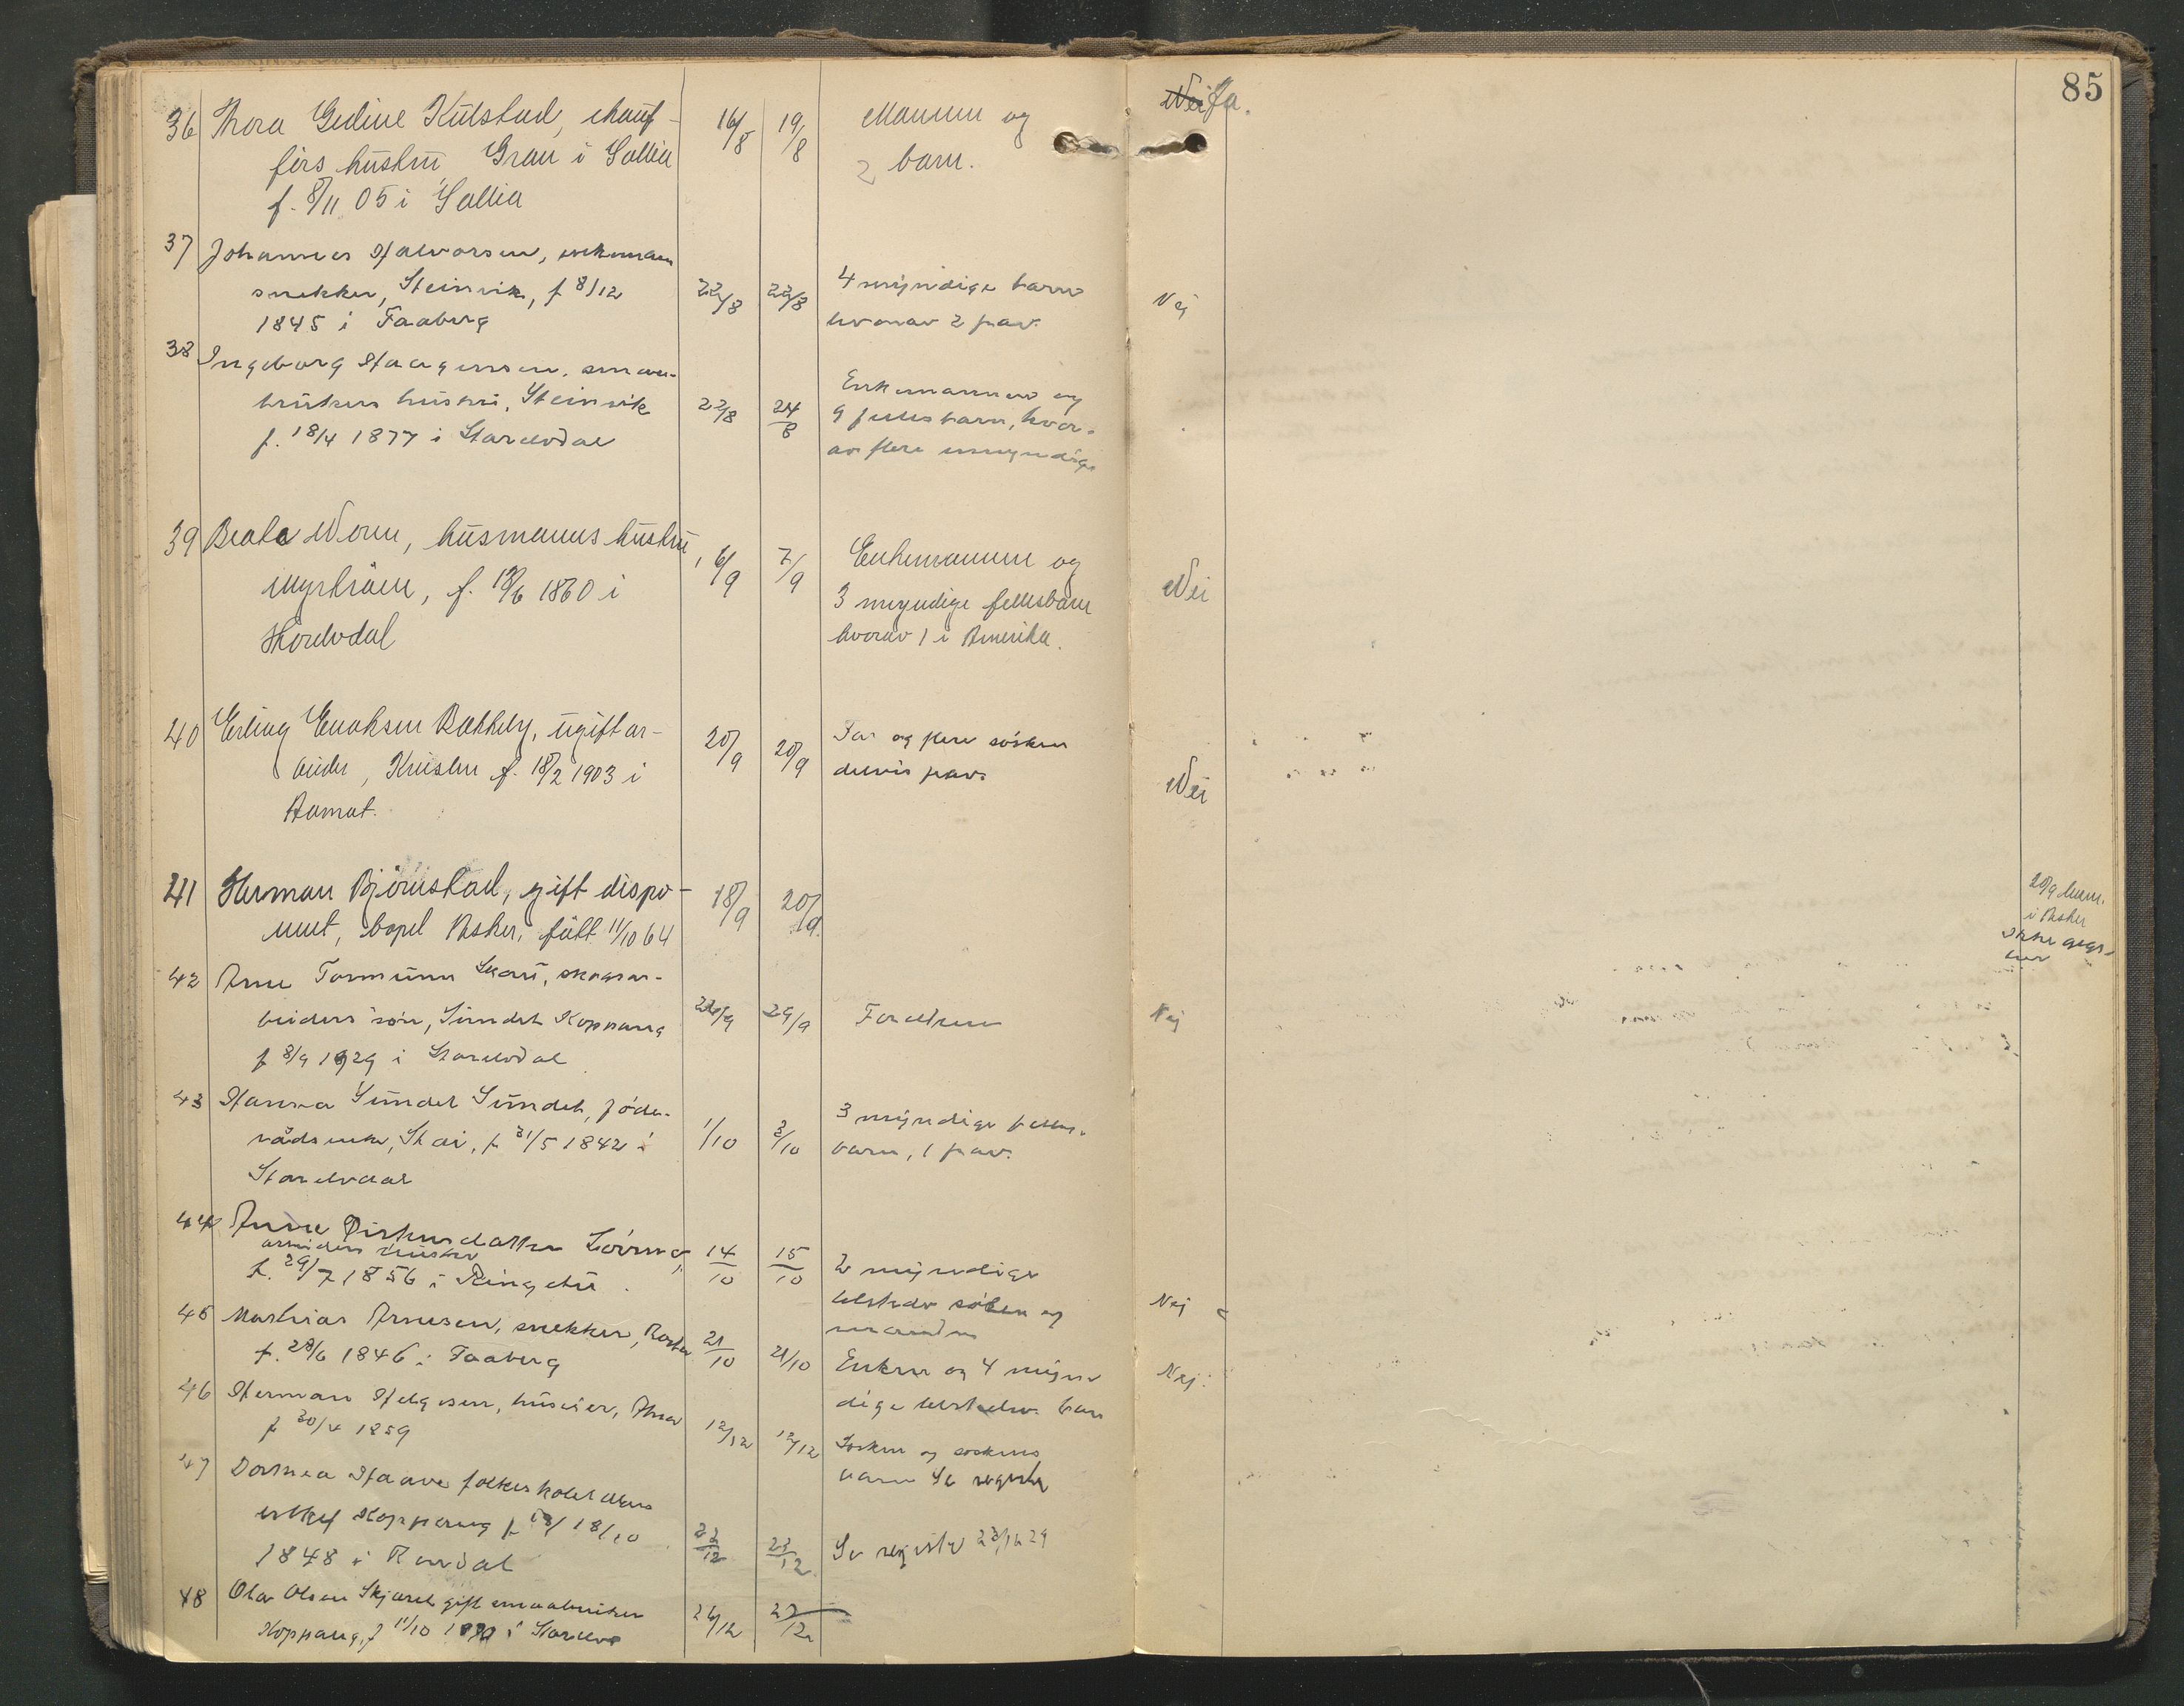 85
36 Thora Gudine Kulstad, chauf-
førs hustru, Grau i Sollia
f. 8/11 05 i Sollia
16/8 19/8
Mannen og
2 barn.
Nei Ja.
37 Johannes Halvorsen, enkemann
snekker, Steinvik, f 8/12
1845 i Faaberg
22/8 22/8
4 myndige barn
hvorav 2 frav.
Nej
38 Ingeborg Haagensen, smaa-
brukers hustru, Steinvik
f. 18/4 1877 i Storelvdal
22/8 24/8
Enkemannen og
9 fellesbarn, hvor-
av flere umyndige
39 Beate Moen, husmanns hustru,
f. 1860 i
Storelvdal
6/9 7/9
Enkemannen og
3 myndige fellesbarn
hvorav 1 i Amerika.
Nei
40 Erling Enoksen Bakkely, ugift ar-
beider, f. 18/2 1903 i
Aamot.
20/9 20/9
Far og flere søsken
delvis frav.
Nei
41 Herman Bjørnstad, gift dispo-
nent, bopel Asker, født 11/10 64
18/9 20/9
20/9
i Asker
ikke
her
42 Arne Tormunn Skau, skogsar-
beiders søn, Sundet Koppang
f 8/9 1929 i Storelvdal
29/9
Foreldrene
Nej
43 Hanna Sundet Sundet, føde-
råds enke, Stai, f 31/5 1842 i
Storelvdal
1/10 3/10
3 myndige felles-
barn, 1 frav.
44
arbeiders hustru
f. 29/7 1856 i Ringebu
14/10 15/10
2 myndige
og
manden
Nej
45 Mathias Arnesen, snekker,
f. 28/6 1846 i Faaberg
21/10 21/10
Enken og 4 myn-
dige barn
Nej
46 Herman Helgesen, huseier,
f 30/4 1859
12/12 12/12
Søsken og søskens
barn Se register
47 Dorthea Haave
Koppang f 18/10
1848 i Rendal
22/12 23/12
Se register 23/12 29
48 Ola Olsen Skjæret gift smaabruker
Koppang, f 11/10 i Storelvd
26/12 27/12